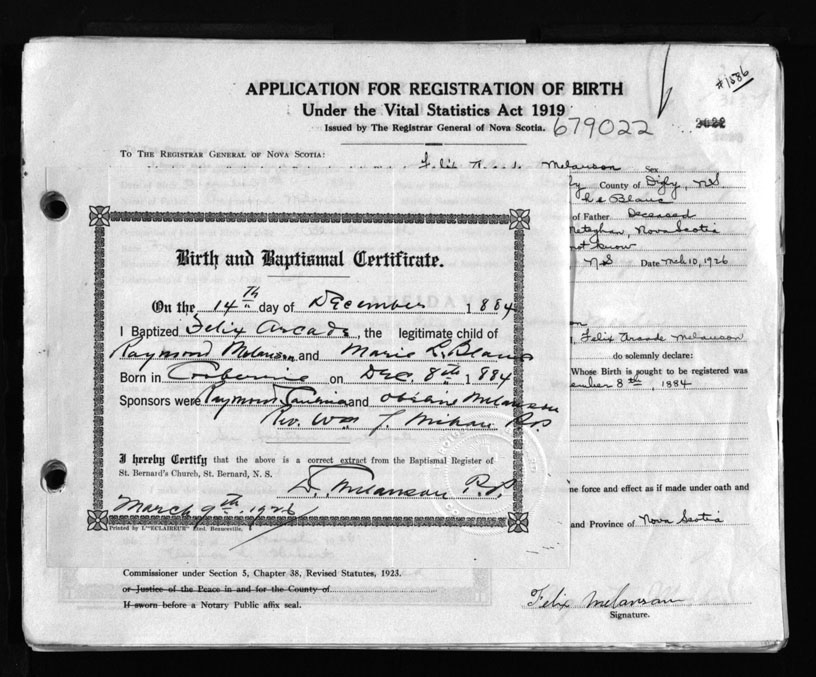 #1586
APPLICATION FOR REGISTRATION OF BIRTH
Under the Vital Statistics Act 1919
Issued by The Registrar General of Nova Scotia.
679022
TO THE REGISTRAR GENERAL OF NOVA SCOTIA:
Felix Arcade Melanson Sex
County of Digby, NS
Le Blanc
of Father Deceased
Meteghan, Nova Scotia
not know
NS Date Mch 10, 1926
Birth and Baptismal Certificate.
On the 14th day of December 1884
I Baptized Felix Arcade, the legitimate child of
Raymond Melanson and Marie L. Blanc
Born in Corberrie on Dec. 8th 1884
Sponsors were Raymond and Melanson
Rev. Wm
I hereby Certify that the above is a correct extract from the Baptismal Register of
St. Bernard's Church, St. Bernard, N. S.
D. Melanson P.P.
March 9th, 1926
Printed by L'"ECLAIREUR" Beauceville,
Felix Arcade Melanson
do solemnly declare:
Whose Birth is sought to be registered was
ember 8th, 1884
ne force and effect as if made under oath and
and Province of Nova Scotia
Commissioner under Section 5, Chapter 38, Revised Statutes, 1923.
or Justice of the Peace in and for the County of
If sworn before a Notary Public affix seal.
Felix Melanson
Signature.